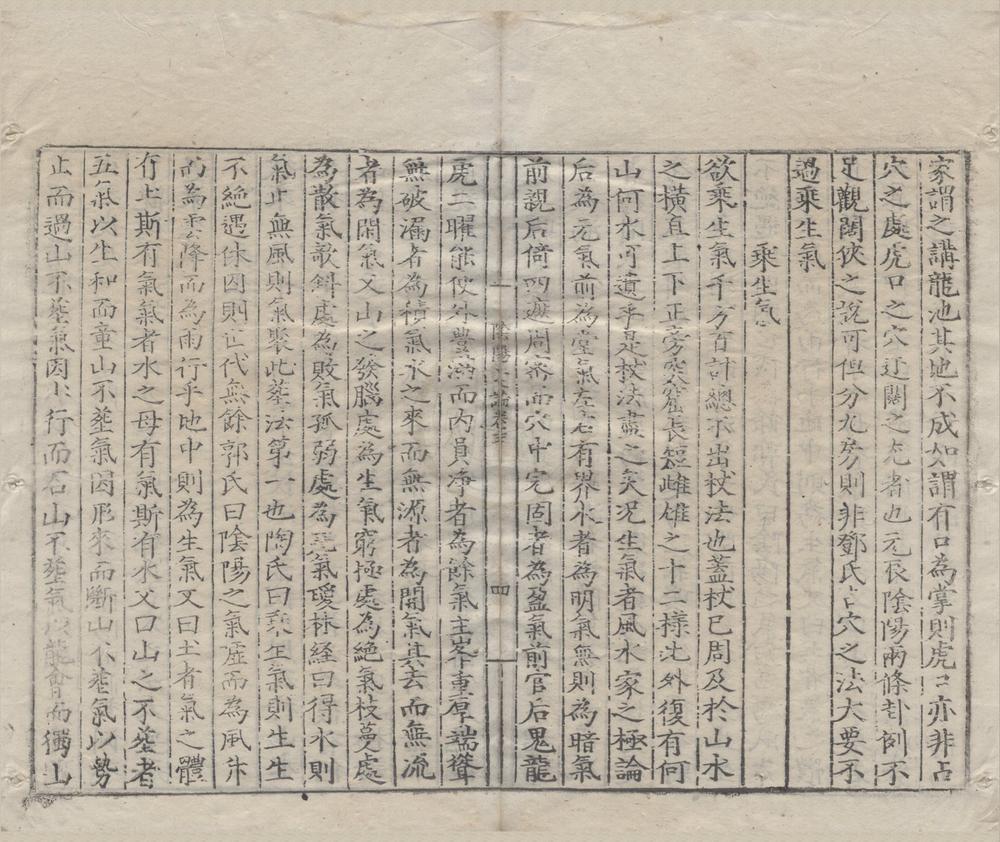 家謂之講龍池其地不成知謂有口為掌則虎口亦非占
穴之處虎口之穴迂闊之尤者也元辰陰陽兩條卦例不
足觀闊俠之說可但分九旁則非鄧氏占穴之法大要不
過乘生氣
乘生氣
欲乘生氣千方百計總不出杖法也蓋杖已周及於山水
之橫直上下正旁突窟長短雌雄之十二樣此外復有何
山何水可遺乎是杖法盡之矣况生氣者風水家之極論
后為元氣前為堂氣左右有界水者為明氣無則為暗氣
前親后倚四廠周密而穴中完固者為盈氣前官后鬼龍
四
虎二曜能使外豊滿而內員净者為餘氣主峯重厚端聳
無破漏者為積氣水之來而無源者為開氣其去而無流
者為閑氣又山之發腦處為生氣窮極處為絕氣枝蔓處
為散氣欹斜處為敗氣孤弱處為死氣璦琳経曰得水則
氣止無風則氣聚此葬法第一也陶氏曰乘生氣則生生
不絕遇休囚則亡代無餘郭氏曰陰陽之氣噓而為風升
而為雲降而為雨行乎地中則為生氣又曰土者氣之體
有土斯有氣氣者水之母有氣斯有水又口山之不葬者
五氣以生和而童山不葬氣因形來而斷山不葬氣以勢
止而過山不葬氣因土行而石山不葬氣以龍會而獨山